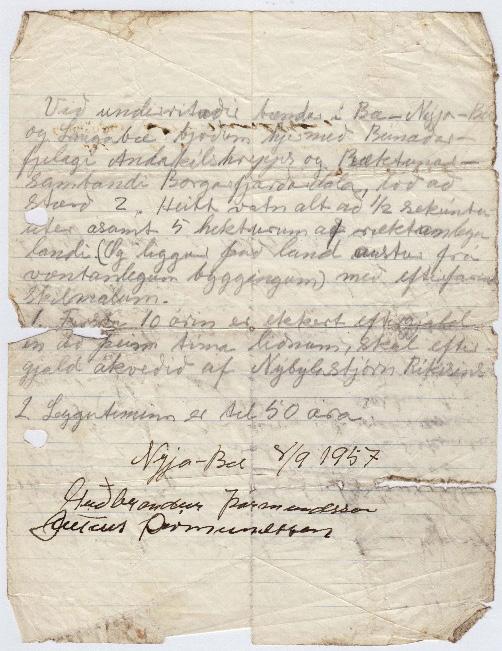 Við undirritaðir bændur í Bæ - Nýja-Bæ
og bjóðum hér með Bunaðar-
fjelagi Andakilshrepps og Ræktunar-
sambandi Borgarfjarðardala, lóð að
stærð 2. Heitt vatn alt að 1/2 sekúntu
liter ásamt 5 hekturum af ræktanlegu
landi (Og liggur það land austur frá
væntanlegum byggingum) með eftirfarandi
skilmálum.
1. Fyrstu 10 árin er ekkert eftirgjald
en að þeim tíma liðnum, skal eftir
gjald ákveðið af Nýbýlastjórn Ríkisins
2 Leigutíminn er til 50 ára
Nýja-Bæ 8/9 1957
Guðbrandur Þormundsson
Þormundsson